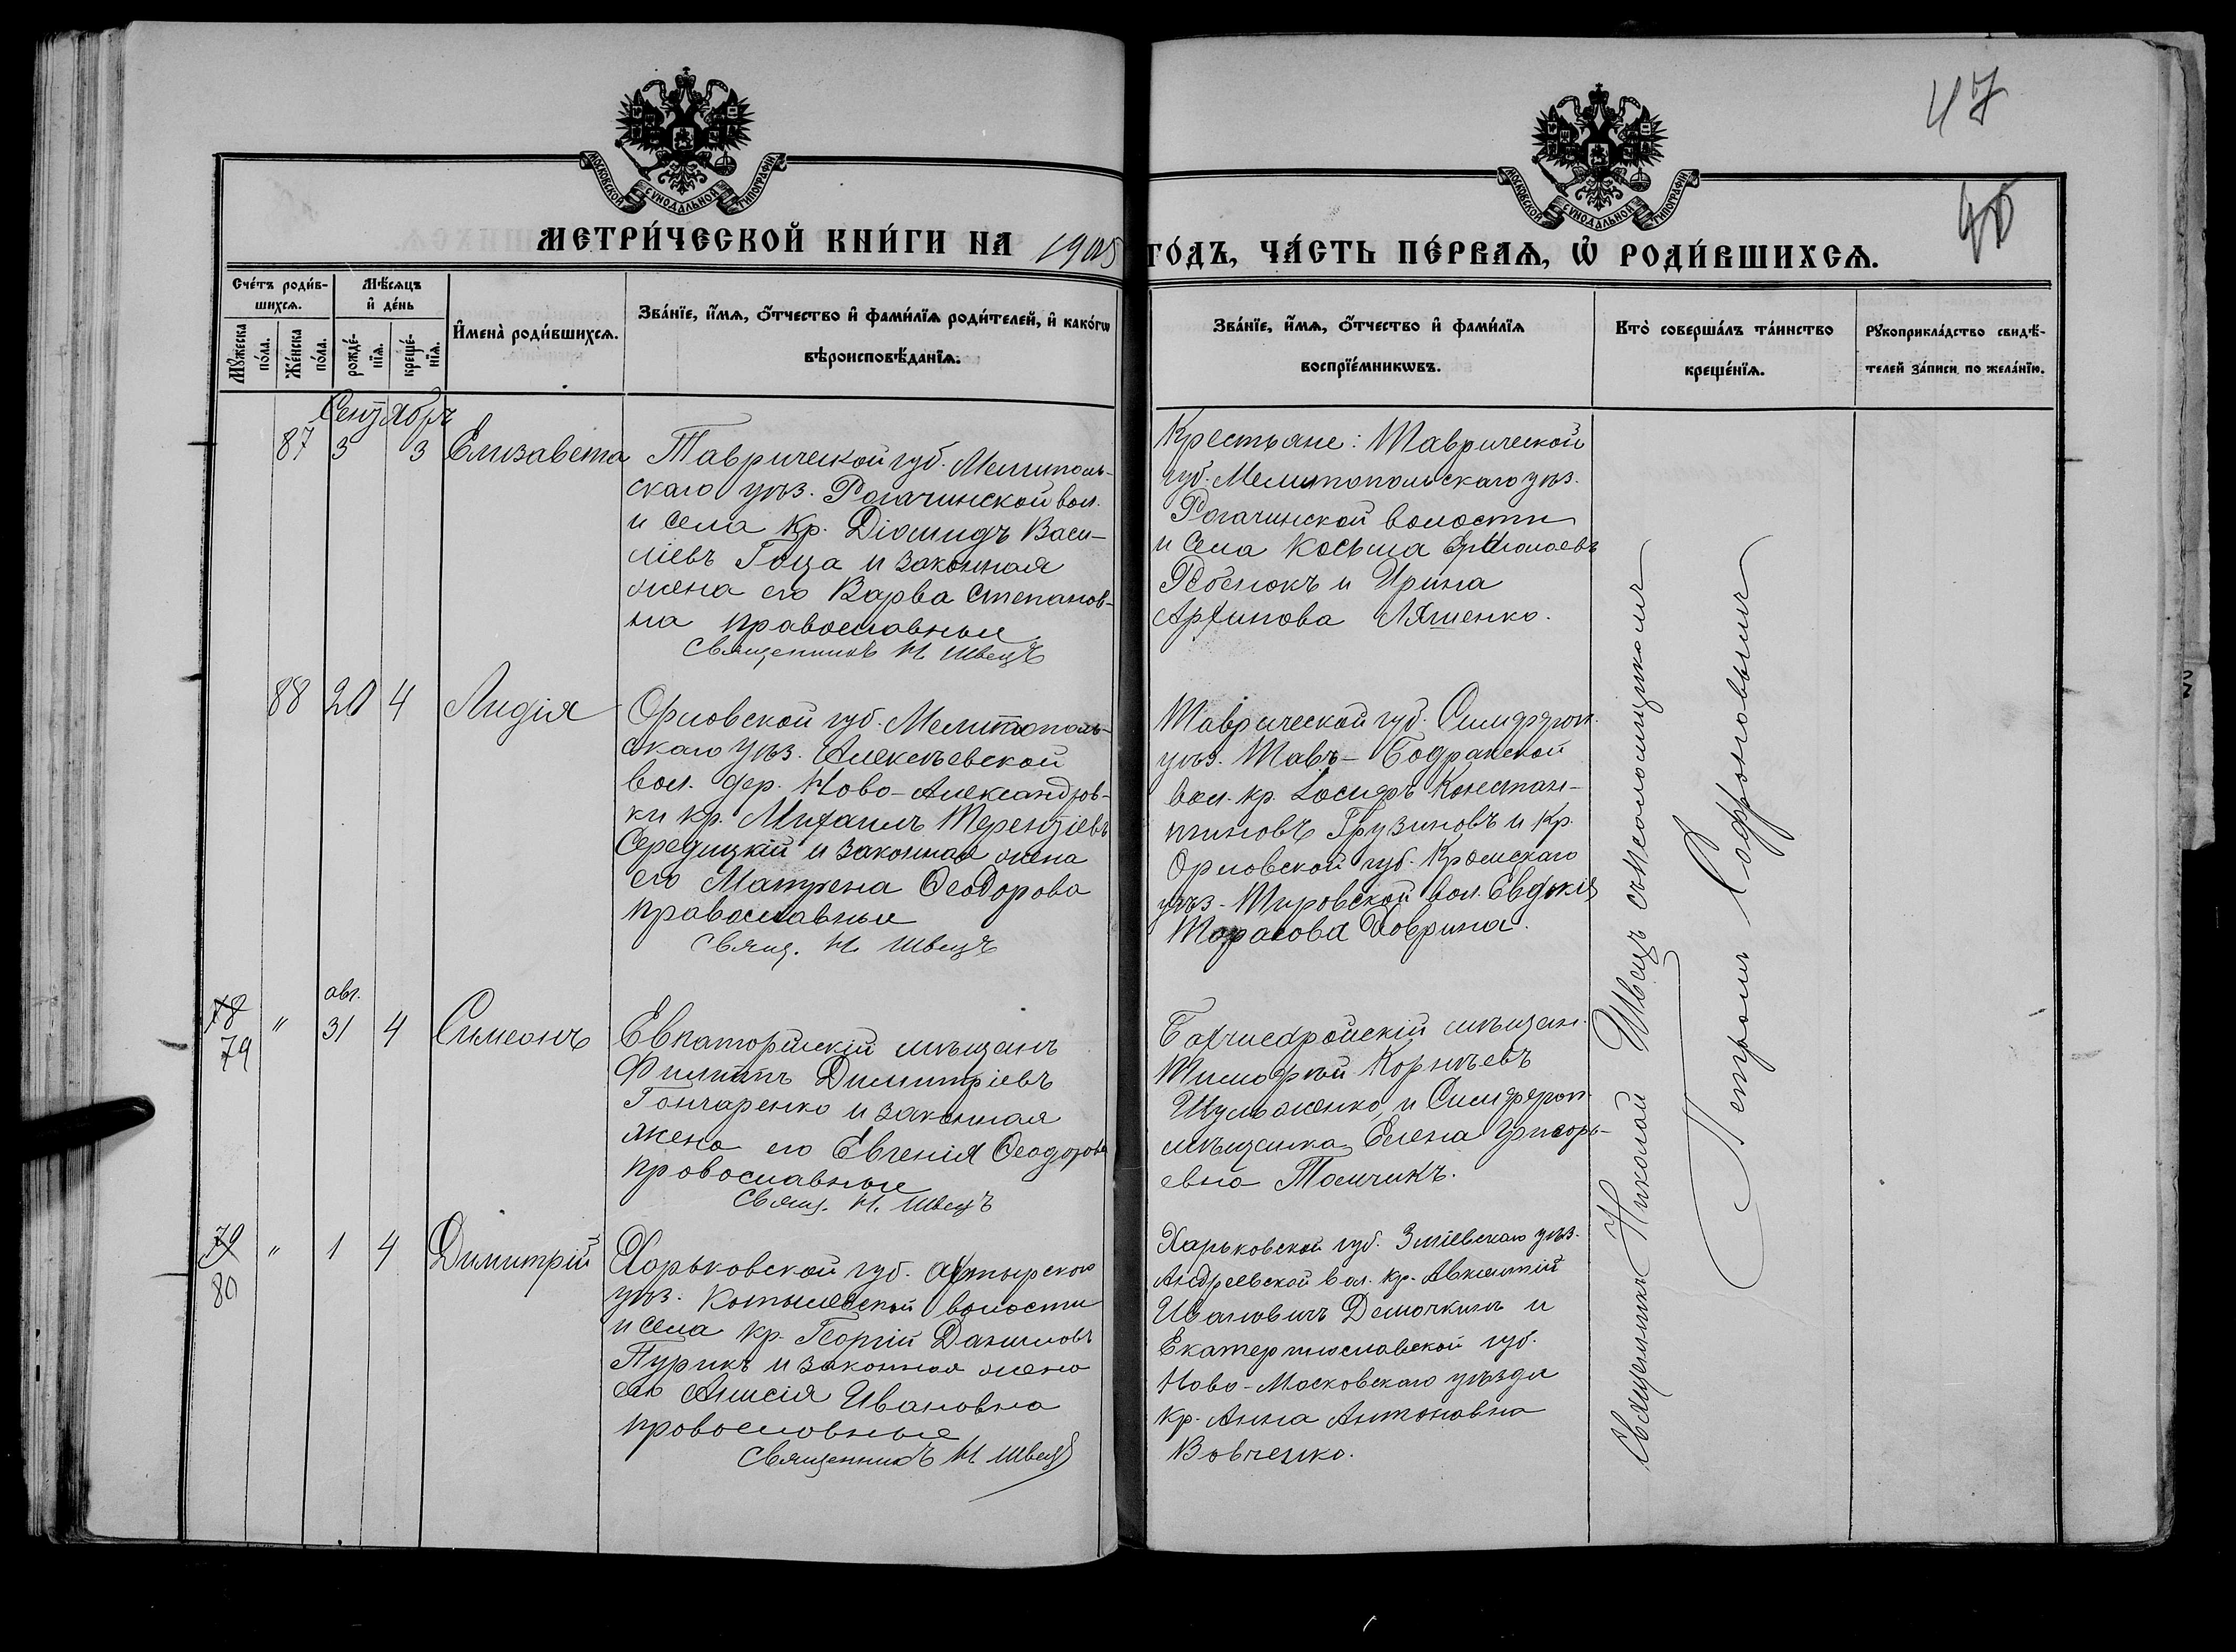 47
МОСКОВСКОЙ СѴНОДАЛЬНОЙ ТИПОГРАФІИ
МОСКОВСКОЙ СѴНОДАЛЬНОЙ ТИПОГРАФІИ
МЕТРИ́ЧЕСКОЙ КНИ́ГИ НА 1905 ГО́ДЪ, ЧА́СТЬ ПЕ́РВАѦ, Ѡ҆ РОДИ́ВШИХСѦ.
Сче́тъ роди́в-
шихсѧ.
Мꙋ́жеска по́ла.
Же́нска по́ла.
Мѣ́сѧцъ
и҆ де́нь
рожде́-
нїѧ.
креще́-
нїѧ.
И҆мена̀ роди́вшихсѧ.
Зва́нїе, и҆́мѧ, ѻ҆́тчество и҆ фами́лїѧ роди́телей, и҆ како́гѡ
вѣроисповѣ́данїѧ.
Зва́нїе, и҆́мѧ, ѻ҆́тчество и҆ фами́лїѧ
воспрїе́мникѡвъ.
Кто̀ соверша́лъ та́инство
креще́нїѧ.
Рꙋкоприкла́дство свидѣ́-
телей за́писи по жела́нїю.
Сентябрь
87 3 3 Елизавета
Таврической губ. Мелитополь-
скаго уѣз. Рогачинской вол.
и села кр. Діомидъ Васи-
ліевъ Гоца и законная
жена его Варва Степанов-
на православные
Священникъ Н Швецъ
Крестьяне: Таврической
губ. Мелитопольскаго уѣз.
Рогачинской волости
и села Косьма
и Ирина
Архипова Ляшенко.
88 20 4 Лидія
Орловской губ. Мелитополь-
скаго уѣз. Алексѣевской
вол. дер. Ново-Александров-
ки кр. Михаилъ Терентіевъ
Середицкій и законная жена
его Матрена Ѳеодорова
православные
Свящ. Н Швецъ
Таврической губ. Симфероп.
уѣз. Тавъ-Бодракской
вол. кр. Іосифъ Констан-
тиновъ Грузиновъ и кр.
Орловской губ. Кромскаго
уѣз. вол. Евдокія
Тарасова Ховрина.
авг.
78 79 " 31 4 Симеонъ
Евпаторійскій мѣщанъ
Филиппъ Димитріевъ
Гончаренко и законная
жена его Евгенія Ѳеодорова
православные
Свящ. Н. Швецъ
Бахчисарайскій мѣщан.
Тимофей Корнѣевъ
Шульженко и Симфероп.
мѣщанка Елена Григорь-
евна Томчикъ.
79 80 " 1 4 Димитрій
Харьковской губ. Ахтырскаго
уѣз. Котелевской волости
и села кр. Георгій Даниловъ
Пурикъ и законная жена
его Анисія Ивановна
православные
Священникъ Н Швецъ
Харьковской губ. Зміевскаго уѣз.
Андреевской вол. кр. Авксентій
Ивановичъ Демочкинъ и
Екатеринославской губ.
Ново-Московскаго уѣзда
кр. Анна Антоновна
Вовченко.
Священникъ Николай Швецъ съ псаломщикомъ
Петромъ Софроновымъ